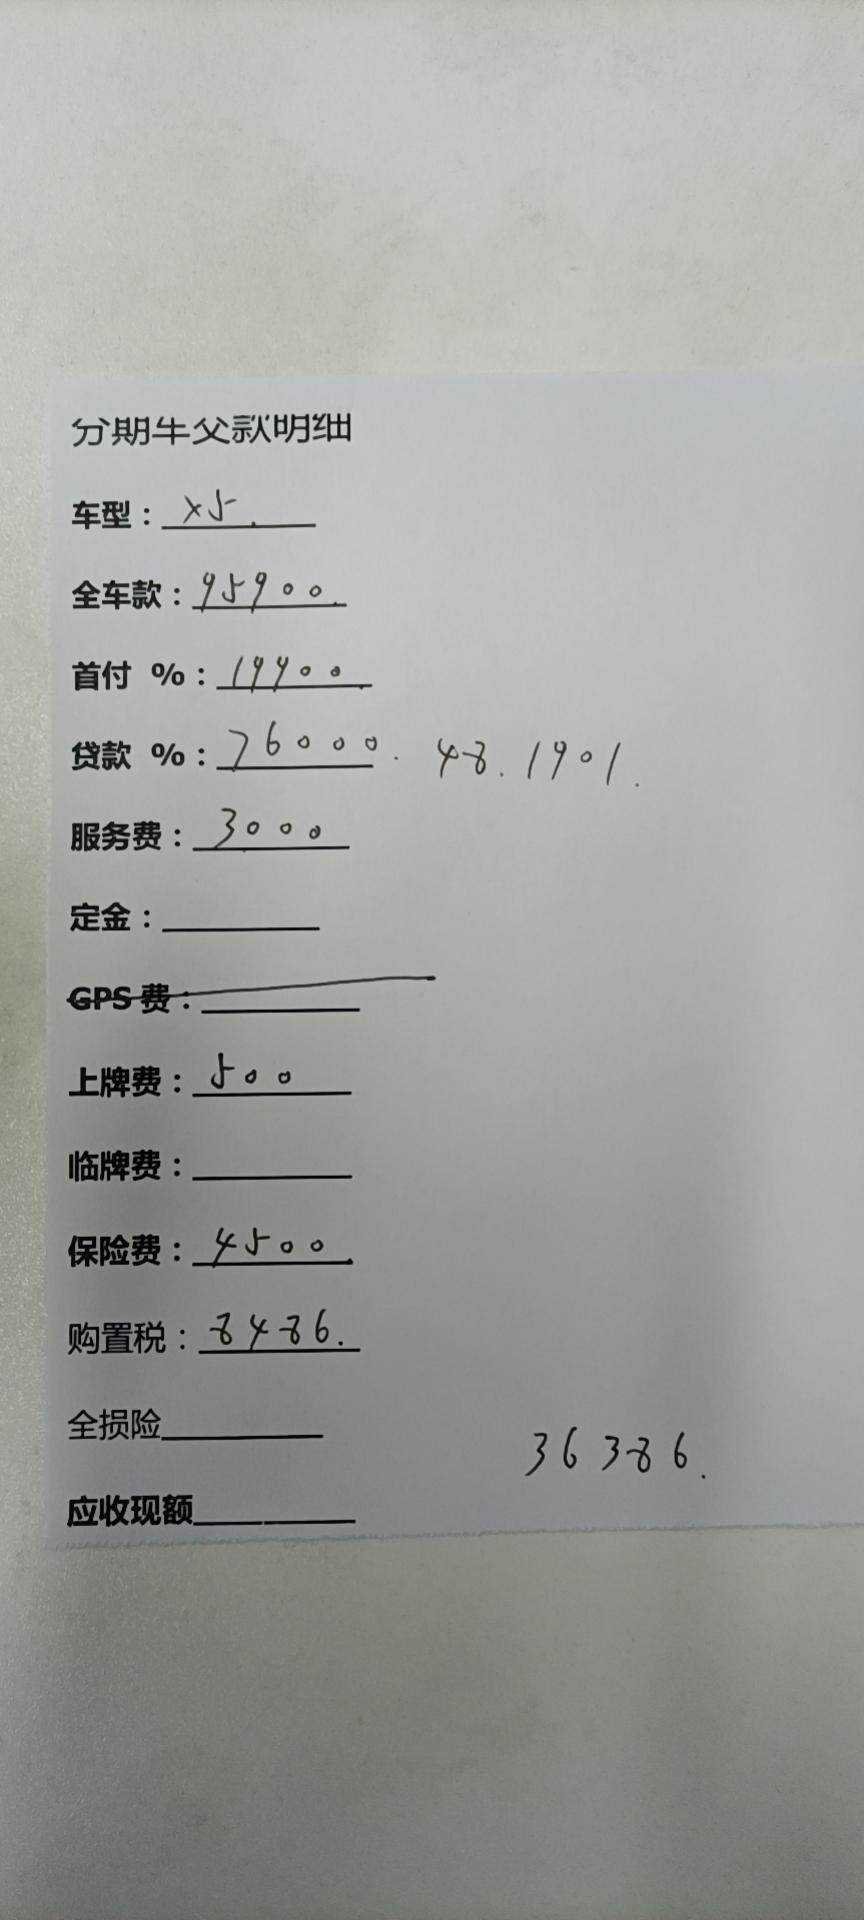 分期车父款明细
车型：x5.
全车款：95900.
首付 %：19900.
贷款 %：76000. 48. 1901.
服务费：3000
定金：
GPS 费：
上牌费：500
临牌费：
保险费：4500.
购置税：8486.
全损险
36386.
应收现额